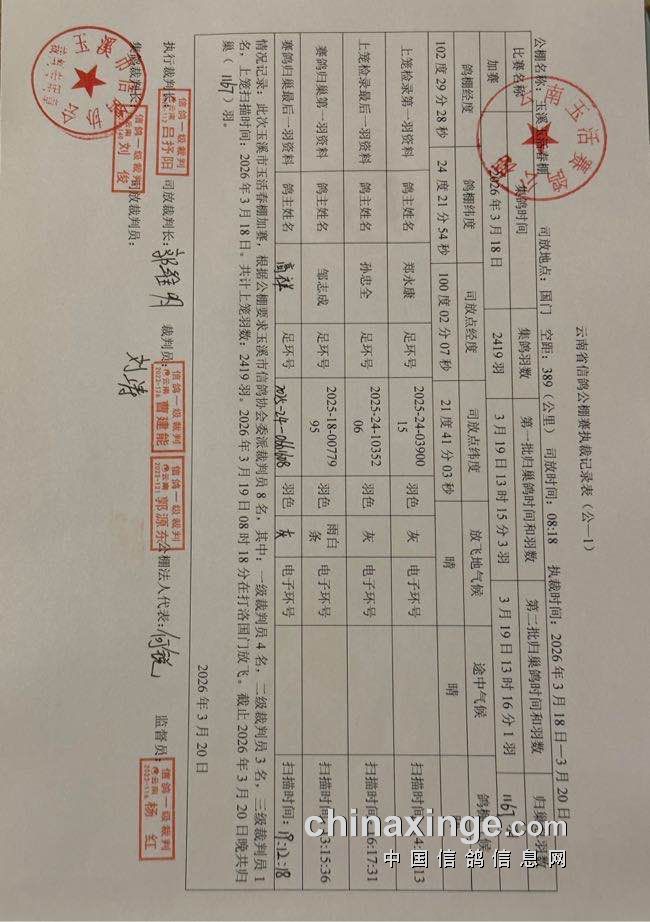 云南省信鸽公棚赛执裁记录表（公—1）
公棚名称：玉溪玉活春棚 司放地点：国门 空距：389（公里） 司放时间：08:18 执裁时间：2026年3月18日—3月20日
比赛名称 集鸽时间 集鸽羽数 第一批归巢鸽时间和羽数 第二批归巢鸽时间和羽数 归巢羽数
加赛 2026年3月18日 2419羽 3月19日13时15分3羽 3月19日13时16分1羽 1167
鸽棚经度 鸽棚纬度 司放点经度 司放点纬度 放飞地气候 途中气候 鸽棚气候
102度29分28秒 24度21分54秒 100度02分07秒 21度41分03秒 晴 晴
上笼检录第一羽资料 鸽主姓名 郑永康 足环号 2025-24-0390015 羽色 灰 电子环号 扫描时间：
上笼检录最后一羽资料 鸽主姓名 孙忠全 足环号 2025-24-1035206 羽色 灰 电子环号 扫描时间：16:17:31
赛鸽归巢第一羽资料 鸽主姓名 邹志成 足环号 2025-18-0077995 羽色 雨白条 电子环号 扫描时间：13:15:36
赛鸽归巢最后一羽资料 鸽主姓名 足环号 羽色 灰 电子环号 扫描时间：
情况记录：此次玉溪市玉活春棚加赛，根据公棚要求玉溪市信鸽协会委派裁判员8名，其中：一级裁判员4名，二级裁判员3名，三级裁判员1
名，上笼扫描时间：2026年3月18日。共计上笼羽数：2419羽。2026年3月19日08时18分在打洛国门放飞。截止2026年3月20日晚共归
巢（1167）羽。
2026年3月20日
执行裁判长： 信鸽一级裁判 云南 吕抒阳 司放裁判长： 裁判员： 信鸽一级裁判 云南 曹建能 信鸽一级裁判 云南 郭源东 公棚法人代表： 监督员： 信鸽一级裁判 云南 杨红
集鸽裁判长： 信鸽一级裁判 云南 刘俊 司放裁判员： 刘涛
chinaxinge.com
中国信鸽信息网